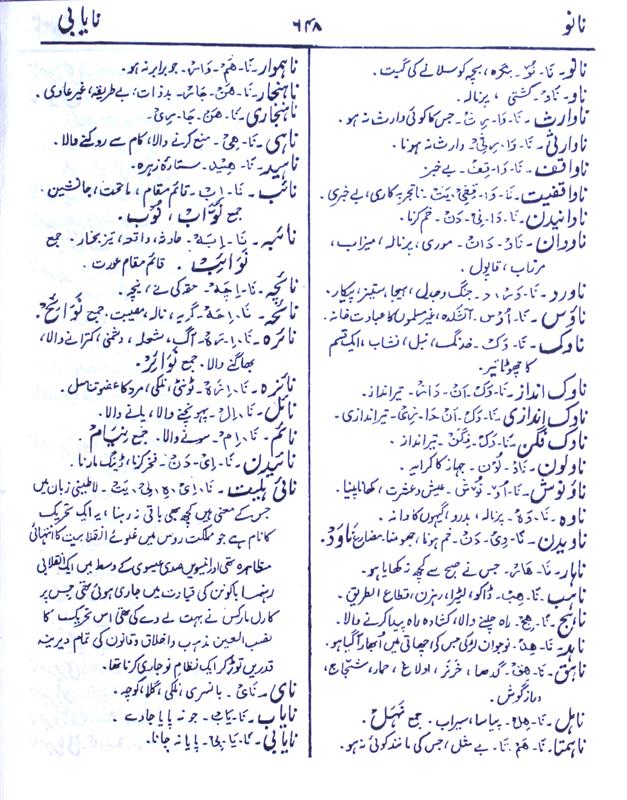 نانو
۶۴۸
نایابی
نانو۔ نَا۔ نُوْ۔ بچہ کو سلانے کی گیت۔
ناو۔ نَاوْ۔ کشتی، پرنالہ۔
ناوارث۔ نَا۔ وَا۔ رِث۔ جس کا کوئی وارث نہ ہو۔
ناوارثی۔ نَا۔ وَا۔ رِثِی۔ وارث نہ ہونا۔
ناواقف۔ نَا۔ وَا۔ قِف۔ بے خبر
ناواقفیت۔ نَا۔ وَا۔ قِفِی۔ یَت۔ ناتجربہ کاری، بے خبری۔
ناوانیدن۔ نَا۔ وَا۔ نِی۔ دَن۔ خم کرنا۔
ناودان۔ نَاوْ۔ دَان۔ موری، پرنالہ، میزاب،
مرتاب، قاپول۔
ناورد۔ نَا۔ وَرْد۔ جنگ و جدل، ہیجا، ستیز، پیکار۔
ناؤس۔ نَا۔ اُوْس۔ آتشکدہ، غیر مسلموں کا عبادت خانہ۔
ناوک۔ نَا۔ وَک۔ خدنگ، نبل، نشاب، ایک قسم
کا چھوٹا تیر۔
ناوک انداز۔ نَا۔ وَک۔ اَن۔ دَاز۔ تیرانداز۔
ناوک اندازی۔ نَا۔ وَک۔ اَن۔ دَا۔ زِی۔ تیراندازی۔
ناوک فگن۔ نَا۔ وَک۔ فِگَن۔ تیرانداز۔
ناولون۔ نَاوْ۔ لُوْن۔ جہاز کا کرایہ۔
ناؤنوش۔ نَا۔ اُوْ۔ نُوْش۔ عیش و عشرت، کھانا پینا۔
ناوہ۔ نَا۔ وَہْ۔ پرنالہ، بدرو، گیہوں کا دانہ۔
ناویدن۔ نَا۔ وِی۔ دَن۔ خم ہونا، جھومنا۔ مضارع نَاوَدْ۔
ناہار۔ نَا۔ هَار۔ جس نے صبح سے کچھ نہ کھایا ہو۔
ناہب۔ نَا۔ هِب۔ ڈاکو، لٹیرا، رہزن، قطاع الطریق۔
ناہج۔ نَا۔ هِج۔ راہ چلنے والا، کشادہ راہ پیدا کرنے والا۔
ناہد۔ نَا۔ هِد۔ نوجوان لڑکی جس کی چھاتی میں اُبھار آگیا ہو۔
ناہق۔ نَا۔ هِق۔ گدھا، خر نر، اولاغ، حمار،
دراز گوش۔
ناہل۔ نَا۔ هِل۔ پیاسا، سیراب۔ جمع نُهَّل۔
ناہمتا۔ نَا۔ هَم۔ تَا۔ بے مثل، جس کی مانند کوئی نہ ہو۔
ناہموار۔ نَا۔ هَم۔ وَار۔ جو برابر نہ ہو۔
ناہنجار۔ نَا۔ هَن۔ جَار۔ بدذات، بے طریقہ، غیر عادی۔
ناہنجاری۔ نَا۔ هَن۔ جَا۔ رِی۔
ناہی۔ نَا۔ هِی۔ منع کرنے والا، کام سے روکنے والا۔
ناہید۔ نَا۔ هِید۔ ستارۂ زہرہ۔
نائب۔ نَا۔ اِب۔ قائم مقام، ماتحت، جانشین۔
جمع نُوَّاب، نُوْب۔
نائبہ۔ نَا۔ اِبَہْ۔ حادثہ، واقعہ، تیز بخار۔ جمع
نَوَائِب۔ قائم مقام عورت۔
نائچہ۔ نَا۔ اِچَہْ۔ حقہ کی نے، نیچہ۔
نائحہ۔ نَا۔ اِحَہْ۔ گریہ، نالہ، مصیبت۔ جمع نَوَائِح۔
نائرہ۔ نَا۔ اِرَہْ۔ آگ، شعلہ، دشمنی، کترانے والا،
بھاگنے والا۔ جمع نَوَائِر۔
نائزہ۔ نَا۔ اِزَہْ۔ ٹونٹی، نلکی، مرد کا عضو تناسل۔
نائل۔ نَا۔ اِل۔ پہونچنے والا، پانے والا۔
نائم۔ نَا۔ اِم۔ سونے والا۔ جمع نِیَام۔
نائیدن۔ نَا۔ اِی۔ دَن۔ فخر کرنا، ڈینگ مارنا۔
نائی ہلیت۔ نَا۔ اِی۔ هِ۔ لِی۔ یَت۔ لاطینی زبان میں
جس کے معنی ہیں کچھ بھی باقی نہ رہنا، یہ ایک تحریک
کا نام ہے جو مملکت روس میں غلو نے انقلابیت کا انتہائی
مظاہرہ تھی اور انیسویں صدی عیسوی کے وسط میں ایک انقلابی
رہنما باکونن کی قیادت میں جاری ہوئی تھی جس پر
کارل مارکس نے بہت لے دے کی تھی اس تحریک کا
نصب العین مذہب و اخلاق و قانون کی تمام دیرینہ
قدریں توڑ کر ایک نظامِ نو جاری کرنا تھا۔
نای۔ نَایْ۔ بانسری، نلکی، گلا، کوچہ۔
نایاب۔ نَا۔ یَاب۔ جو نہ پایا جاوے۔
نایابی۔ نَا۔ یَا۔ بِی۔ پایا نہ جانا۔